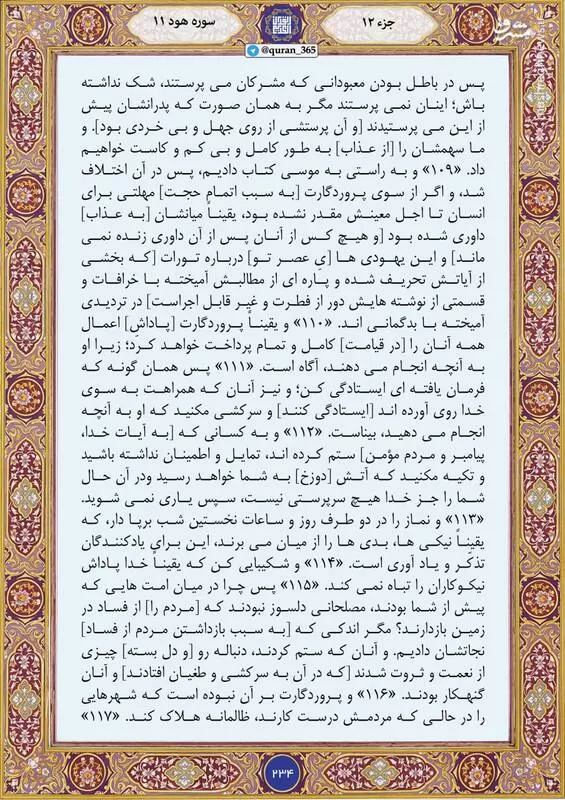 سوره هود ۱۱
جزء ۱۲
@quran_365
مشرق
پس در باطل بودن معبودانی که مشرکان می پرستند، شک نداشته
باش؛ اینان نمی پرستند مگر به همان صورت که پدرانشان پیش
از این می پرستیدند [و آن پرستشی از روی جهل و بی خردی بود]. و
ما سهمشان را [از عذاب] به طور کامل و بی کم و کاست خواهیم
داد. «۱۰۹» و به راستی به موسی کتاب دادیم، پس در آن اختلاف
شد، و اگر از سوی پروردگارت [به سبب اتمامِ حجت] مهلتی برای
انسان تا اجل معینش مقدر نشده بود، یقیناً میانشان [به عذاب]
داوری شده بود [و هیچ کس از آنان پس از آن داوری زنده نمی
ماند] و این یهودی ها [یِ عصر تو] درباره تورات [که بخشی
از آیاتش تحریف شده و پاره ای از مطالبش آمیخته با خرافات و
قسمتی از نوشته هایش دور از فطرت و غیر قابل اجراست] در تردیدی
آمیخته با بدگمانی اند. «۱۱۰» و یقیناً پروردگارت [پاداشِ] اعمال
همه آنان را [در قیامت] کامل و تمام پرداخت خواهد کرد؛ زیرا او
به آنچه انجام می دهند، آگاه است. «۱۱۱» پس همان گونه که
فرمان یافته ای ایستادگی کن؛ و نیز آنان که همراهت به سوی
خدا روی آورده اند [ایستادگی کنند] و سرکشی مکنید که او به آنچه
انجام می دهید، بیناست. «۱۱۲» و به کسانی که [به آیات خدا،
پیامبر و مردم مؤمن] ستم کرده اند، تمایل و اطمینان نداشته باشید
و تکیه مکنید که آتش [دوزخ] به شما خواهد رسید ودر آن حال
شما را جز خدا هیچ سرپرستی نیست، سپس یاری نمی شوید.
«۱۱۳» و نماز را در دو طرف روز و ساعات نخستین شب برپا دار، که
یقیناً نیکی ها، بدی ها را از میان می برند، این برای یادکنندگان
تذکر و یاد آوری است. «۱۱۴» و شکیبایی کن که یقیناً خدا پاداش
نیکوکاران را تباه نمی کند. «۱۱۵» پس چرا در میان امت هایی که
پیش از شما بودند، مصلحانی دلسوز نبودند که [مردم را] از فساد در
زمین بازدارند؟ مگر اندکی که [به سبب بازداشتن مردم از فساد]
نجاتشان دادیم. و آنان که ستم کردند، دنباله رو [و دل بسته] چیزی
از نعمت و ثروت شدند [که در آن به سرکشی و طغیان افتادند] و آنان
گنهکار بودند. «۱۱۶» و پروردگارت بر آن نبوده است که شهرهایی
را در حالی که مردمش درست کارند، ظالمانه هلاک کند. «۱۱۷»
۲۳۴